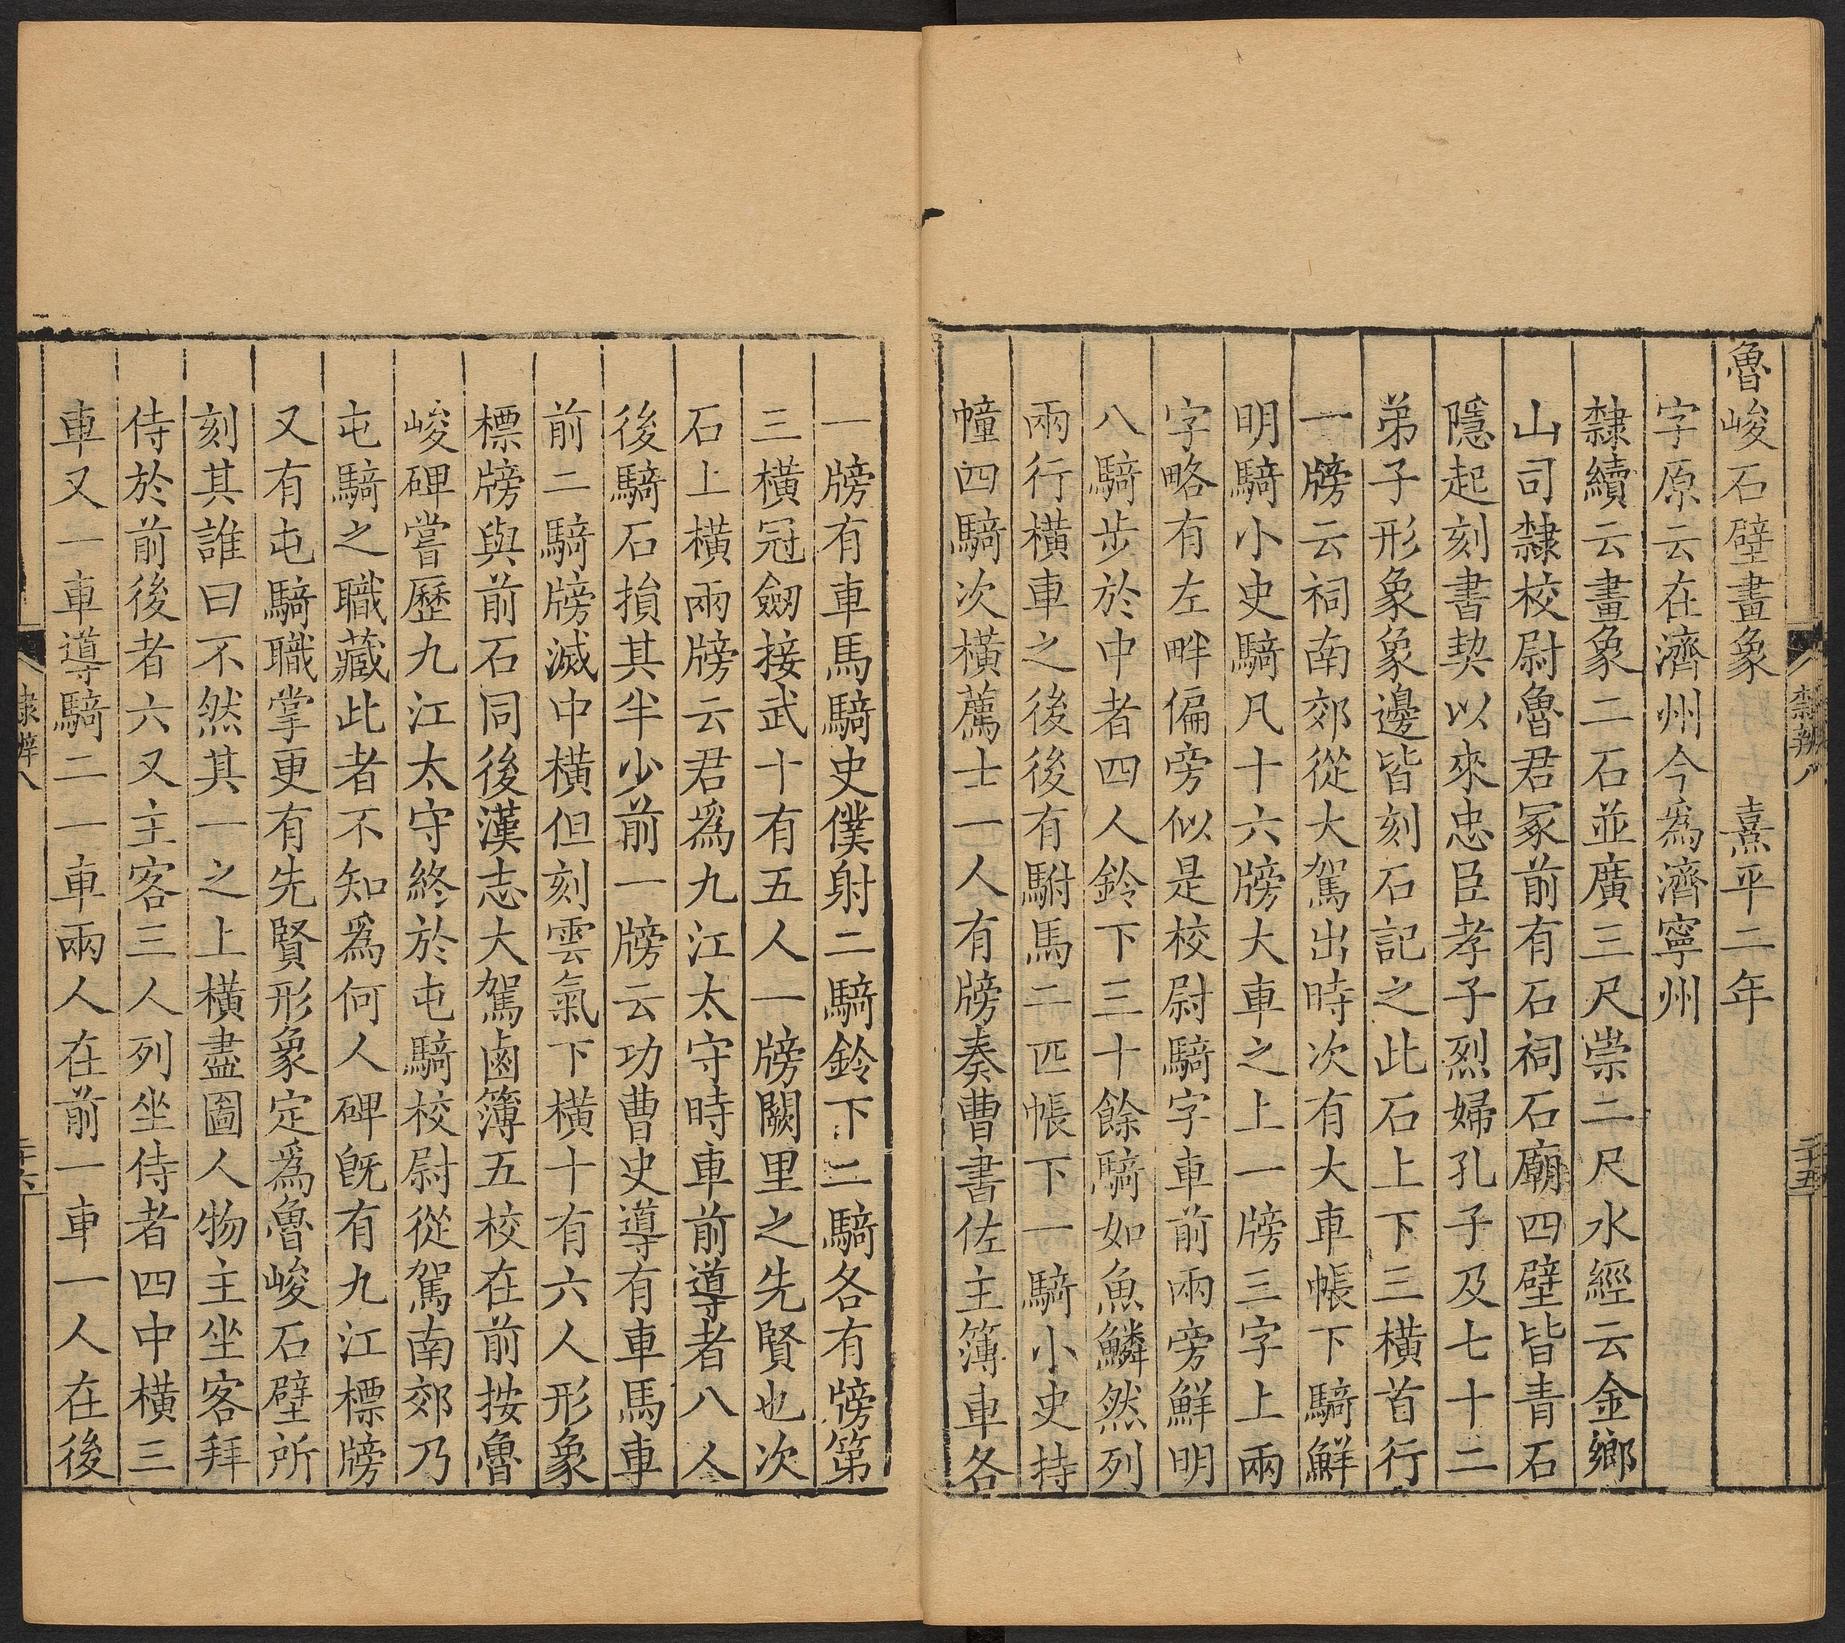 魯峻石壁畫象 熹平二年
字原云在濟州今為濟寧州
隸續云畫象二石並廣三尺崇二尺水經云金鄉
山司隸校尉魯君冢前有石祠石廟四壁皆青石
隱起刻書契以來忠臣孝子烈婦孔子及七十二
弟子形象象邊皆刻石記之此石上下三橫首行
一牓云祠南郊從大駕出時次有大車帳下騎鮮
明騎小史騎凡十六牓大車之上一牓三字上兩
字略有左畔偏旁似是校尉騎字車前兩旁鮮明
八騎步於中者四人鈴下三十餘騎如魚鱗然列
兩行橫車之後後有駙馬二匹帳下一騎小史持
幢四騎次橫薦士一人有牓奏曹書佐主簿車各
一牓有車馬騎史僕射二騎鈴下二騎各有牓第
三橫冠劒接武十有五人一牓闕里之先賢也次
石上橫兩牓云君爲九江太守時車前導者八人
後騎石損其半少前一牓云功曹史導有車馬車
前二騎牓滅中橫但刻雲氣下橫十有六人形象
標牓與前石同後漢志大駕鹵簿五校在前按魯
峻碑嘗歷九江太守終於屯騎校尉從駕南郊乃
屯騎之職藏此者不知爲何人碑旣有九江標牓
又有屯騎職掌更有先賢形象定爲魯峻石壁所
刻其誰曰不然其一之上橫盡圖人物主坐客拜
侍於前後者六又主客三人列坐侍者四中橫三
車又一車導騎二一車兩人在前一車一人在後
隸辨八
二十五